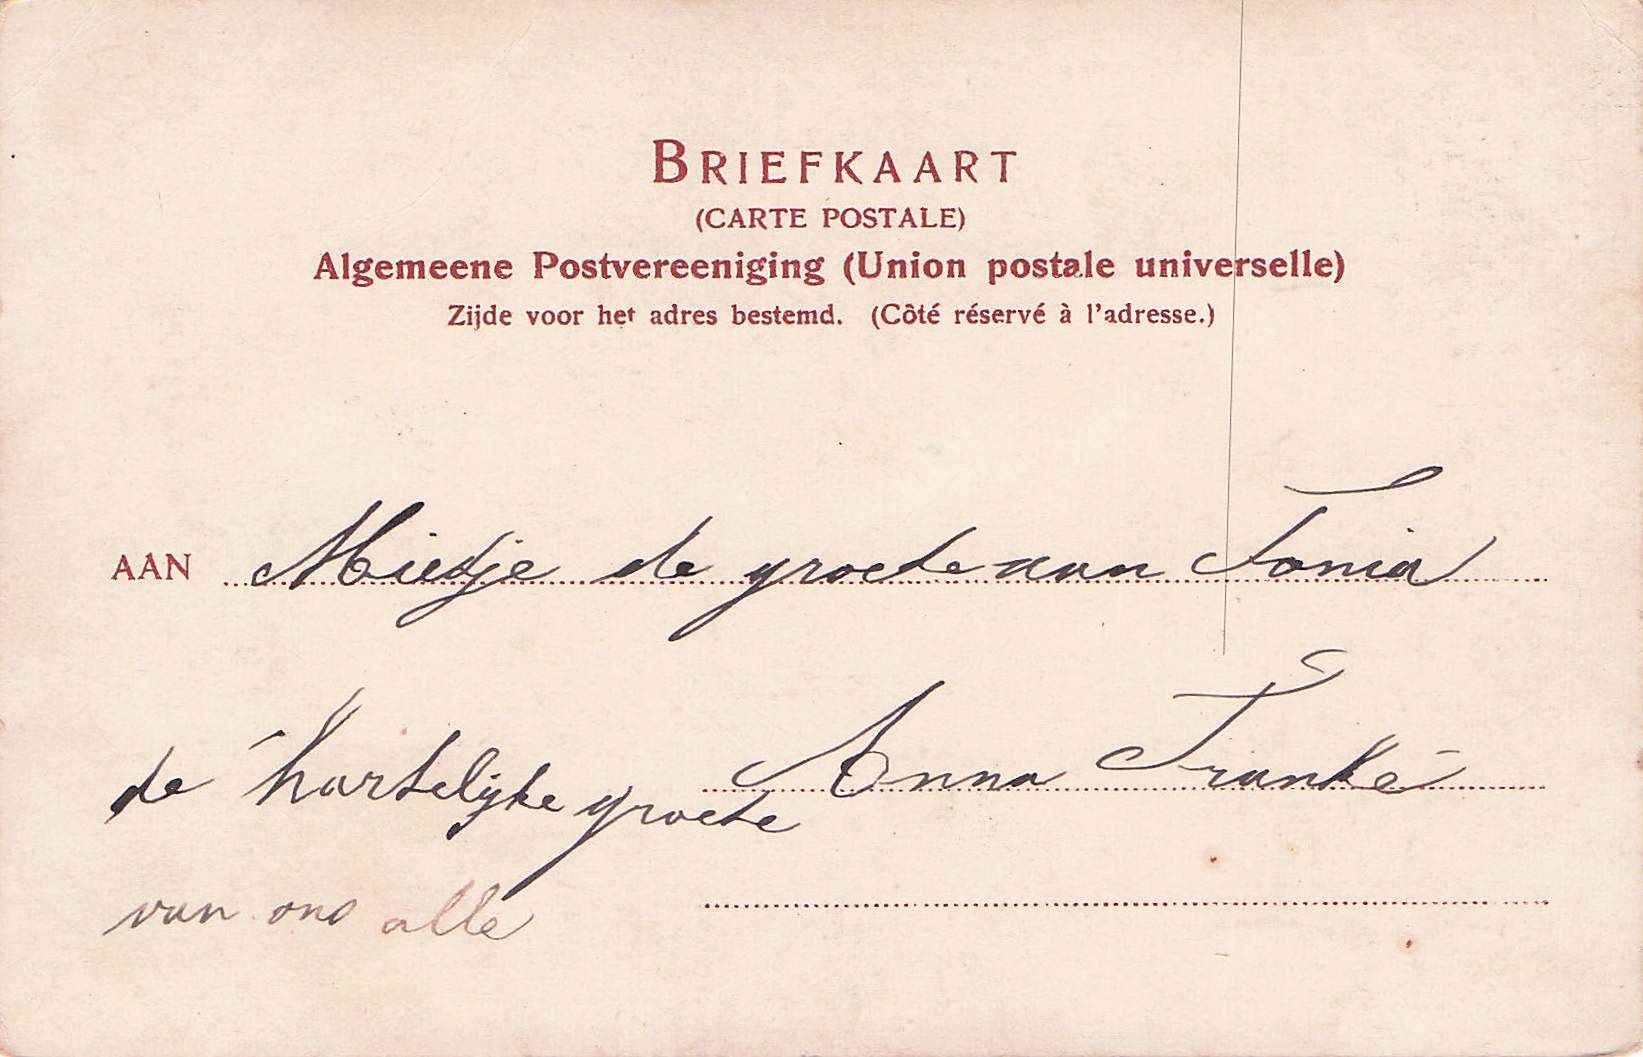 BRIEFKAART
(CARTE POSTALE)
Algemeene Postvereeniging (Union postale universelle)
Zijde voor het adres bestemd. (Côté réservé à l'adresse.)
AAN Mietje de groete aan Tonia
Anna Franké
de hartelijke groete
van ons alle